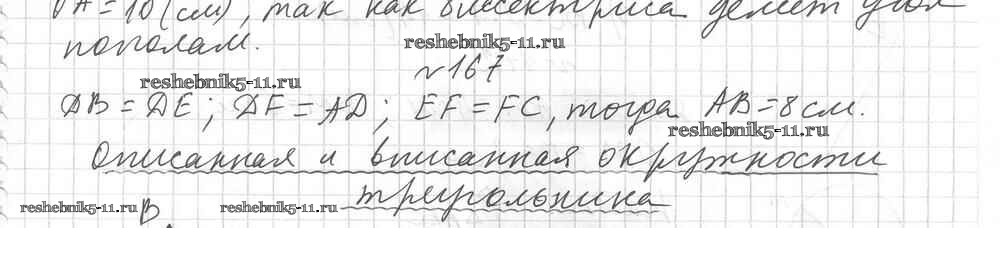 VA = 10 (см), так как биссектриса делит угол
пополам.
reshebnik5-11.ru
№167
reshebnik5-11.ru
DB = DE; DF = AD; EF = FC, тогда AB = 8 см.
reshebnik5-11.ru
Описанная и вписанная окружности
треугольника
reshebnik5-11.ru B reshebnik5-11.ru